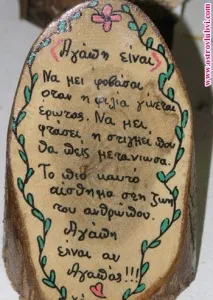 Αγάπη είναι
Να μει φοβασαι
οταν η φιλια γινεται
ερωτας. Να μει,
φτασει η στιγμει που
θα πεις μετανιωσα.
Το πιο καυτό
αίσθημα στη ζωή
του ανθρώπου.
Αγάπη
ειναι αν
Αγαπας!!!
www.astrovluhvi.com